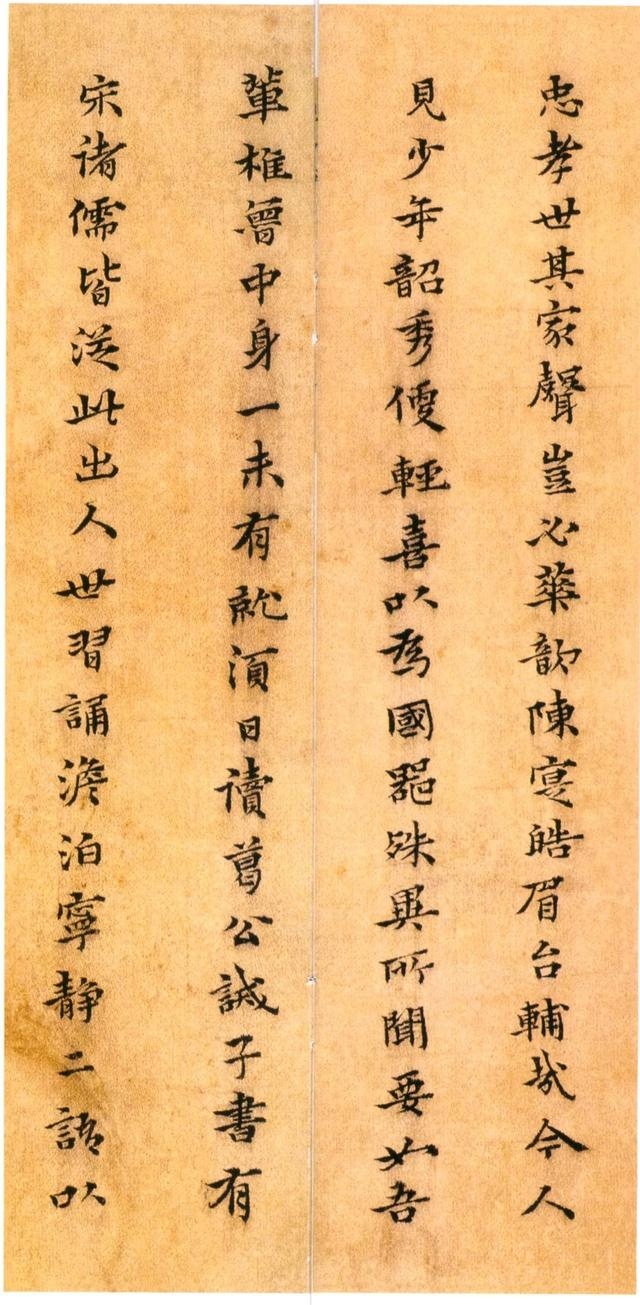 忠孝世其家聲豈必華歆陳寔皓眉台輔哉今人
見少年韶秀便輕喜以為國器殊異所聞要如吾
輩椎魯中身一未有就須日讀葛公誡子書有
宋諸儒皆從此出人世習誦澹泊寧静二語以